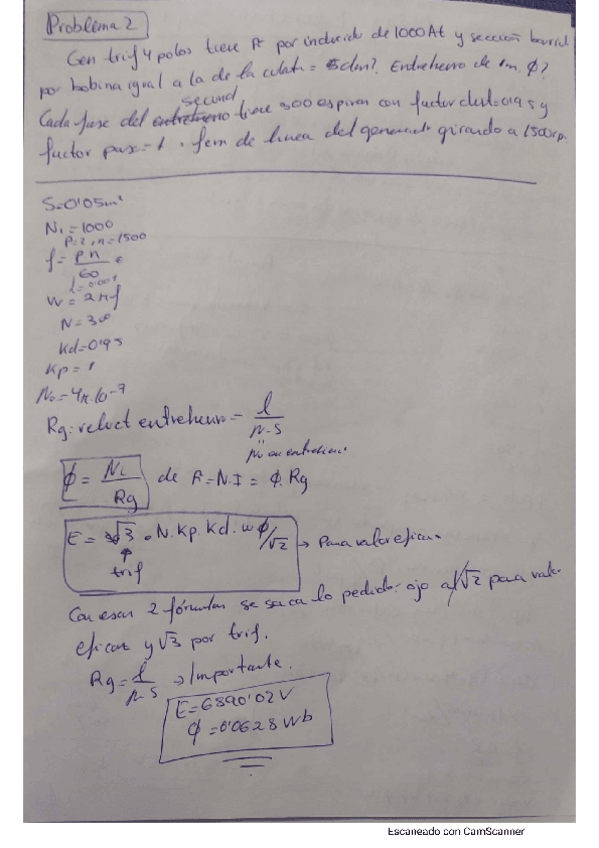 Problema 2
Gen trif 4 polos tiene Pt por inducido de 1000At y sección barrid
por bobina igual a la de la culata = 5dm². Entrehierro de 1m. ϕ?
second
Cada fase del entrehierro tiene 300 espiras con factor dist=0'95 y
factor paso=1. fem de linea del generador girando a 1500rp.
S=0'05m²
Ni=1000
P=2, n=1500
f= pn/60
l=0'001
W=2πf
N=300
Kd=0'95
Kp=1
μo=4π.10⁻⁷
Rg: reluct entrehierro= l/μ.S
μo en entrehierro
ϕ= Ni/Rg de F=N.I= ϕ.Rg
E= √3 . N.Kp.Kd.wϕ/√2 → Para valor eficaz
trif
Con esas 2 fórmulas se saca lo pedido. ojo a /√2 para valor
eficaz y √3 por trif.
Rg= l/μ.S → Importante.
E=6890'02V
ϕ=0'0628 Wb
Escaneado con CamScanner